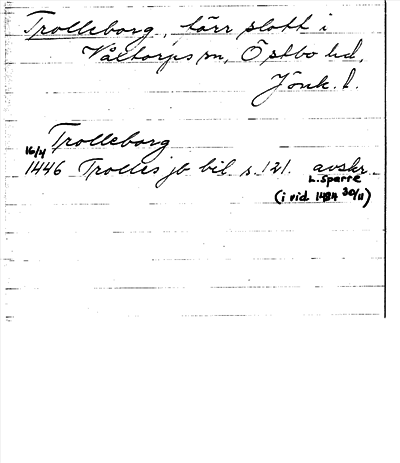 Trolleborg,förr slott i
Våltorps sn, Östbo hd,
Jönk. l.
Trolleborg
16/4
1446 Trolles jb bil s. 121. avskr.
L. Sparre
(i vid 1484 30/11)